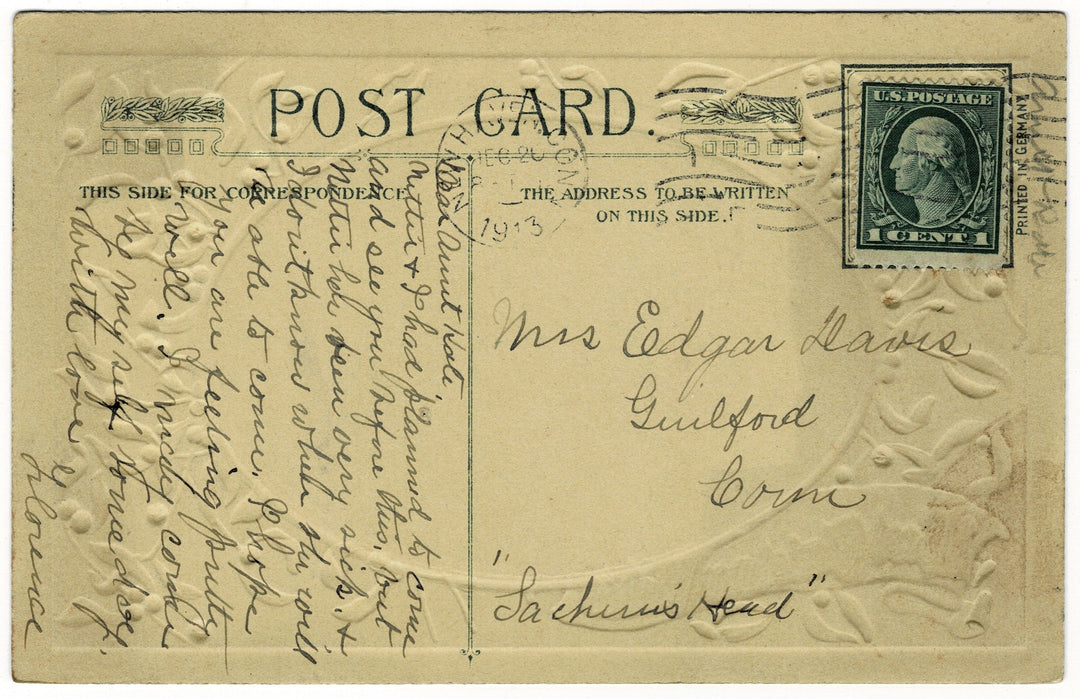 POST CARD.
THIS SIDE FOR CORRESPONDENCE
THE ADDRESS TO BE WRITTEN
ON THIS SIDE.
NEW HAVEN, CONN
DEC 20
1913
U.S. POSTAGE
1 CENT 1
PRINTED IN GERMANY
Dear Aunt Kate
Mother & I had planned to come
and see you before this, but
Mother has been very sick. &
I don't know whether she will
be able to come. I hope
you are feeling pretty
well. I may come
by my self some day.
With love
Florence
Mrs Edgar Davis
Guilford
Conn
"Sachem's Head"